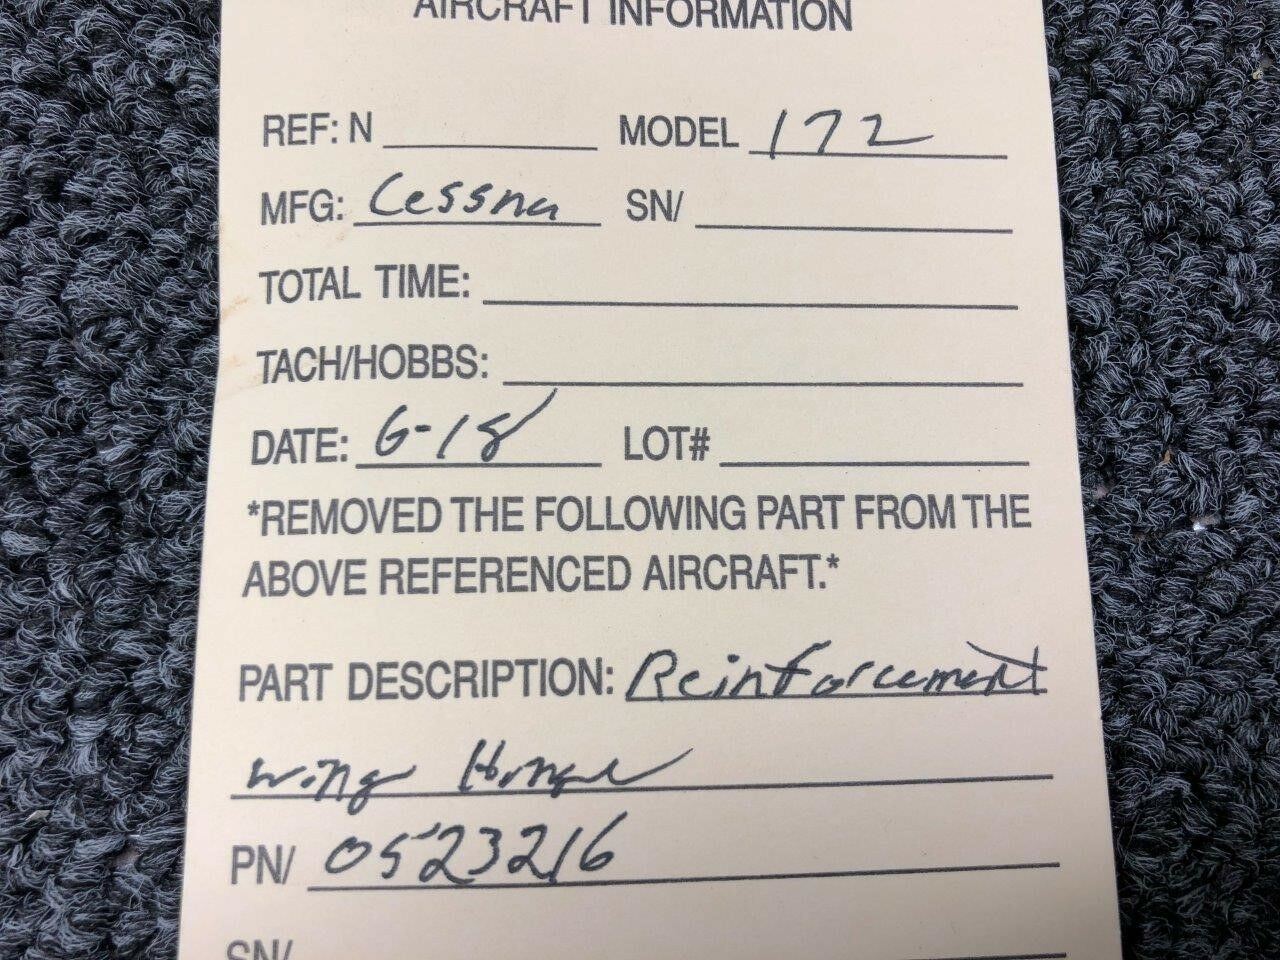 AIRCRAFT INFORMATION
REF: N MODEL 172
MFG: Cessna SN/
TOTAL TIME:
TACH/HOBBS:
DATE: 6-18 LOT#
*REMOVED THE FOLLOWING PART FROM THE
ABOVE REFERENCED AIRCRAFT.*
PART DESCRIPTION: Reinforcement
Wing Hinge
PN/ 0523216
SN/